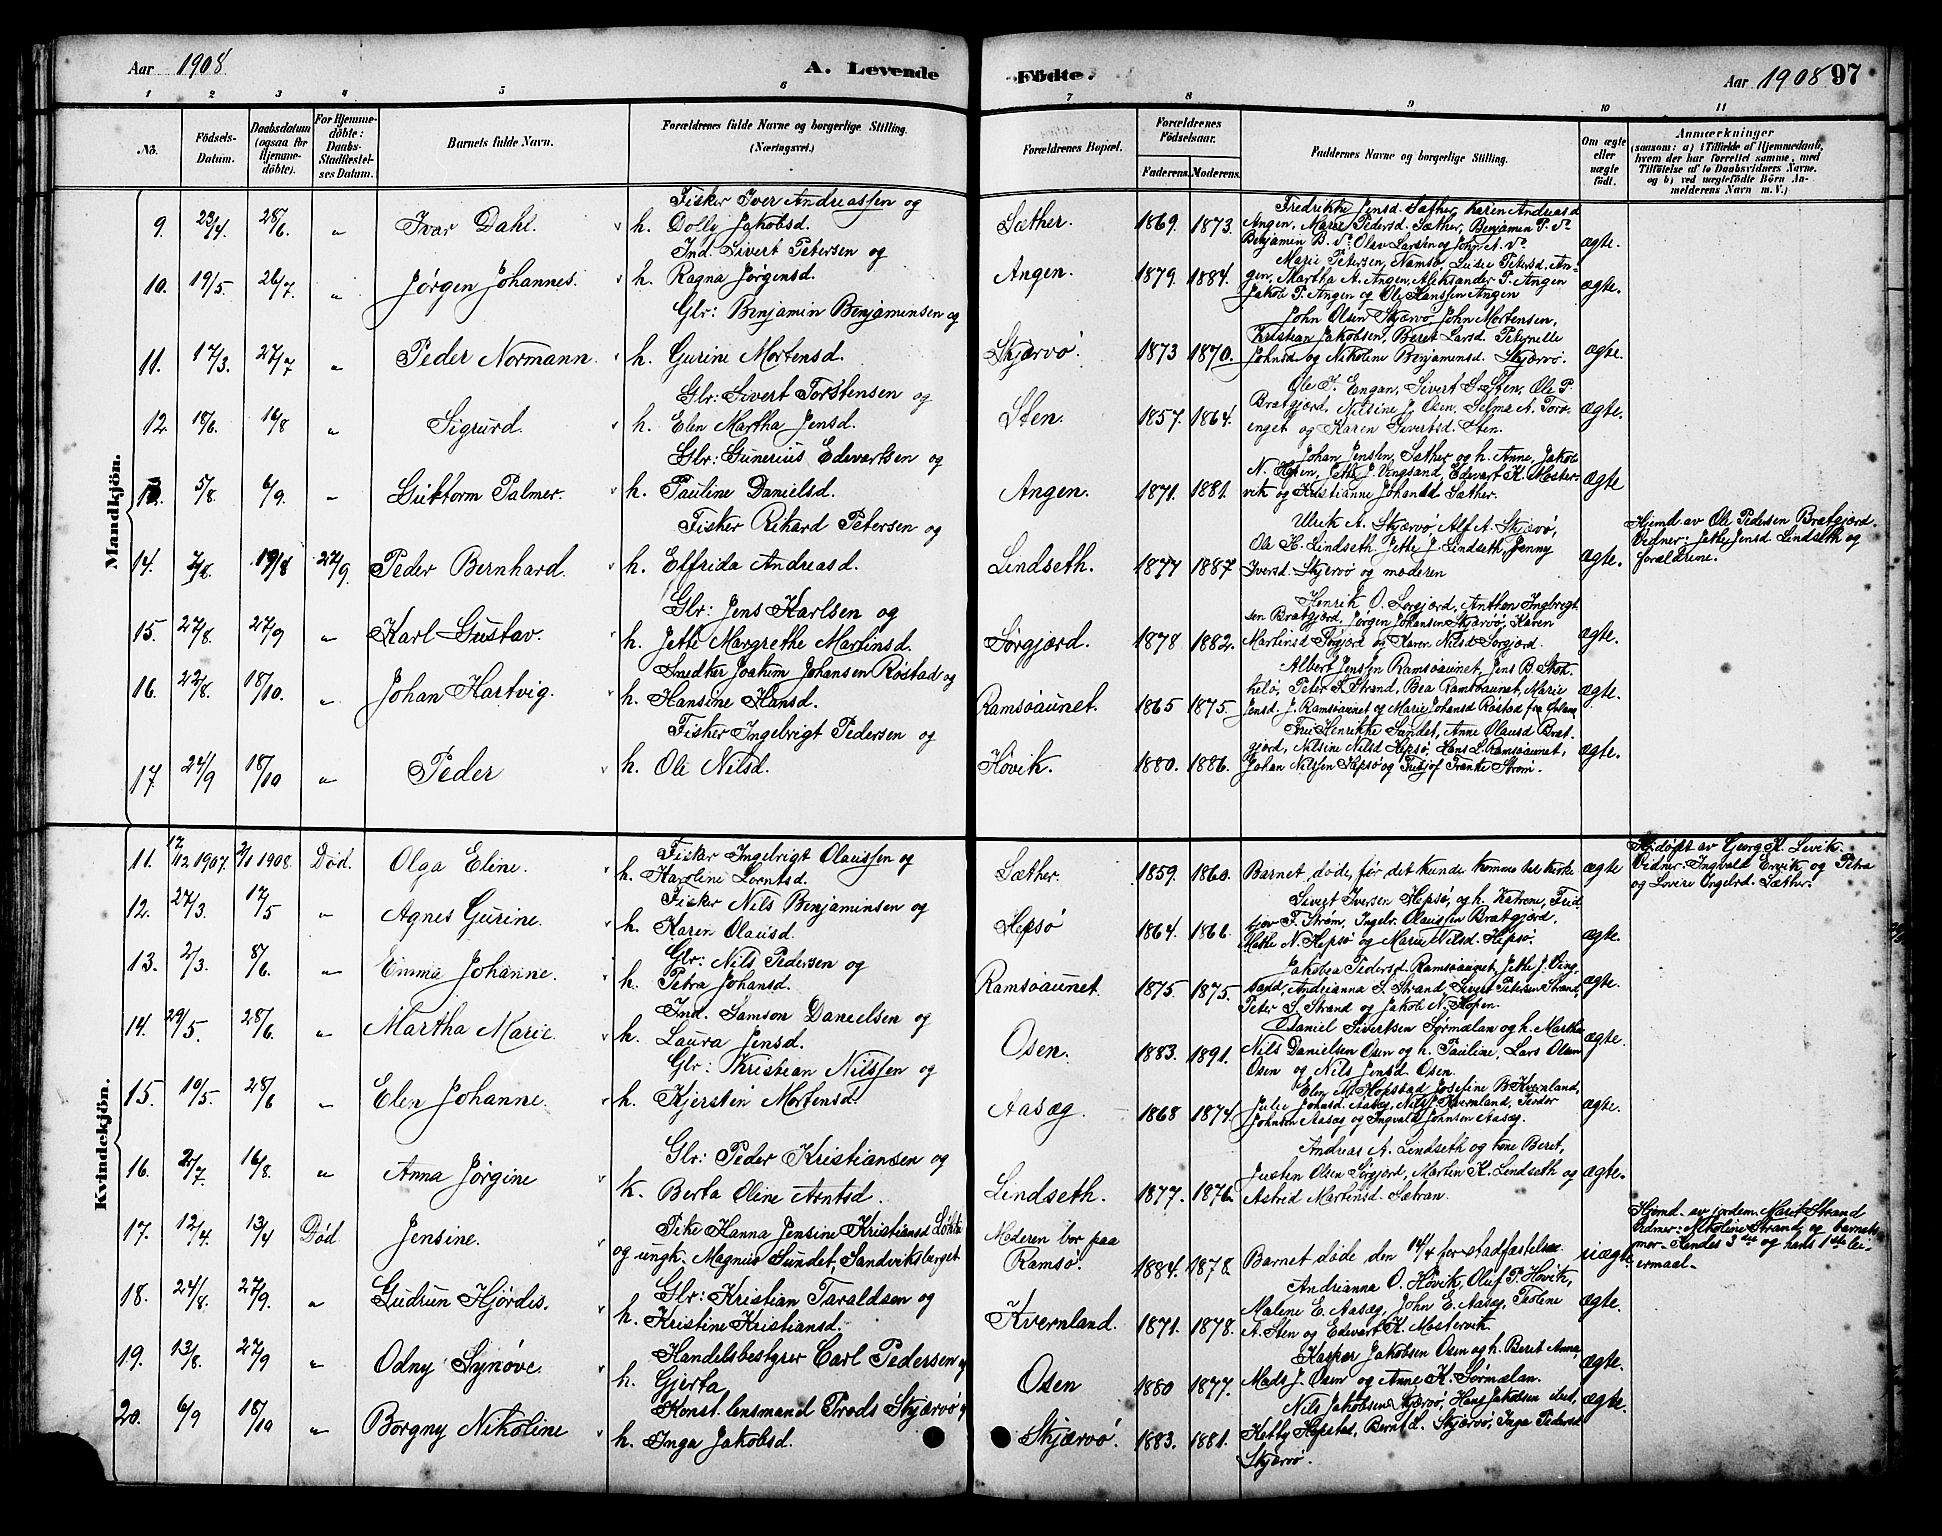 Aar 1908
A. Levende
Födte.
Aar 1908 97
1 2 3 4 5 6 7 8 9 10 11
No.
Födsels-Datum.
Daabsdatum (ogsaa for Hjemme-döbte).
For Hjemme-döbte: Daabs-Stadfæstel-ses Datum.
Barnets fulde Navn.
Forældrenes fulde Navne og borgerlige Stilling. (Næringsvei.)
Forældrenes Bopæl.
Forældrenes Födselsaar.
Faderens. Moderens.
Faddernes Navne og borgerlige Stilling.
Om ægte eller uægte født.
Anmærkninger
(saasom: a) i Tilfælde af Hjemmedaab, hvem der har forrettet samme, med Tilföielse af to Daabsvidners Navne, og b) ved uægtefödte Börn An-melderens Navn m. V.)
Mandkjön.
9. 23/4 28/6 " Ivar Dahl.
Fisker Iver Andreassen og
h. Dolly Jakobsd.
Sæther. 1869. 1873.
Fredrikke Jensd. Sæther, Karen Andreasd
Angen, Marie Pedersd. Sæther, Benjamin P. do
Benjamin B. do, Olav Larsen og John A. do
ægte
10. 19/5 26/7 " Jørgen Johannes.
Ind. Sivert Petersen og
h. Ragna Jørgensd.
Angen. 1879. 1884.
Marie Petersen, Namsø, Luise Petersd. An-
gen, Martha A. Angen, Aleksander P. Angen
Jakob P. Angen og Ole Hanssen Angen
ægte.
11. 17/3. 27/7 " Peder Normann.
Glr: Benjamin Benjaminsen og
h. Gurine Mortensd.
Skjærvø. 1873 1870.
John Olsen Skjærvø John Mortensen,
Kristian Jakobsen, Beret Larsd. Petrnelle
Johnsd og Nikoline Benjaminsd. Skjærvø.
ægte.
12. 18/6. 16/8 " Sigurd.
Glr: Sivert Torstensen og
h. Elen Martha Jensd.
Sten. 1857. 1864.
Ole J. Engan, Sivert S. Sten, Ole P.
Bratgjærd, Nilsine J. Osen, Selma A. Torø-
enget og Karen Sivertsd. Sten.
ægte.
13. 5/8. 6/9. " Guttorm Palmer.
Glr: Gunerius Edvartsen og
h. Pauline Danielsd.
Angen. 1871. 1881.
Johan Jensen, Sæther og h. Anne, Jakob
N. Hopen, Jette J. Vingsand, Edvart K. Moster-
vik og Kristianne Johansd Sæther.
ægte
14. 2/8. 19/8 27/9 Peder Bernhard.
Fisker Rikard Petersen og
h. Elfrida Andreasd.
Lindseth. 1877 1887
Ulrik A. Skjærvø Alf A. Skjærvø,
Ole H. Lindseth, Jette J. Lindseth, Jenny
Iversd. Skjærvø og moderen
ægte.
Hjemd av Ole Pedersen Bratgjærd.
Vidner: Jette Jensd. Lindseth og
forældrene.
15. 27/8. 27/9 " Karl Gustav.
Glr: Jens Karlsen og
h. Jette Margrethe Martinsd.
Sørgjærd. 1878 1882.
Henrik O. Sørgjærd, Anthon Ingebrigt
sen Bratgjærd, Jørgen Johansen Skjærvø, Karen
Martinsd Sørgjærd og Karen Nilsd Sørgjærd.
ægte.
16. 22/8. 18/10. " Johan Hartvig.
Snedker Joakim Johansen Røstad og
h. Hansine Hansd.
Ramsøaunet. 1865 1875.
Albert Jensen Ramsøaunet, Jens B. Stok-
helø, Peter S. Strand, Bea Ramsøaunet, Marie
Jensd. J. Ramsøaunet og Marie Johansd Røstad fra
ægte.
17. 24/9 18/10 " Peder
Fisker Ingebrigt Pedersen og
h. Ole Nilsd.
Høvik. 1880. 1886.
Fru Henrikke Sundet, Anne Olausd Brat-
gjærd, Nilsine Nilsd Hepsø, Hans L. Ramsøaunet,
Johan Nilssen Hepsø og Fritjof Strøm.
ægte.
Kvindekjön.
11. 17/12 1907. 2/1 1908. Död. Olga Eline.
Fisker Ingebrigt Olaussen og
h. Karoline Lorntsd.
Sæther. 1859. 1860.
Barnet døde, før det kunde komme til kirke
ægte
Hj.døpt av Georg K. Levik.
Vidner: Ingvald Ervik og Petra
og Lovise Ingebrd. Sæther.
12. 27/3. 17/5 " Agnes Gurine.
Fisker Nils Benjaminsen og
h. Karen Olausd.
Hepsø 1864. 1866.
Sivert Iversen Hepsø, og h. Katrine, Frid
tjov F. Strøm, Ingebr. Olaussen Bratgjærd,
Mette N. Hepsø og Marie Nilsd. Hepsø.
ægte.
13. 2/3. 8/6. " Emma Johanne.
Glr: Nils Pedersen og
h. Petra Johansd.
Ramsøaunet 1875. 1875.
Jakobea Pedersd. Ramsøaunet, Jette J. Ving-
sand, Andrianna S. Strand, Sivert Petersen Strand,
Peter S. Strand og Jakob N. Hopen.
ægte.
14. 29/5. 28/6 " Martha Marie.
Ind. Samson Danielsen og
h. Laura Jensd.
Osen. 1883. 1891.
Daniel Sivertsen Sørmælan og h. Martha
Nils Danielsen Osen og h. Pauline, Lars Olsen
Osen og Nils Jensd. Osen.
ægte.
15. 10/5. 28/6 " Elen Johanne.
Glr: Kristian Nilssen og
h. Kjersten Mortensd.
Aasæg 1868 1874.
Elen M. Hopstad Josefine B. Kvernland,
Julie Johnsd. Aasæg, Nils J. Kvernland, Peder
Johnsen Aasæg og Ingvald Johnsen Aasæg.
ægte.
16. 2/7. 16/8. " Anna Jørgine
Glr: Peder Kristiansen og
K. Berta Oline Arntsd.
Lindseth. 1877. 1876.
Andreas A. Lindseth og kone Beret,
Justen Olsen Sørgjærd, Martin K. Lindseth og
Astrid Martinsd. Sætran.
ægte.
17. 12/4. 13/4 Död Jensine.
Pike Hanna Jensine Kristiansd
og ungk. Magnus Sundet, Sandviksberget
Moderen bor paa
Ramsø. 1884. 1878.
Barnet døde den 14/4 for stadfæstelse.
uægte
Hjemd. av jordem. Maret Strand
Vidner: Nikoline Strand og barnets
mor. Hendes 3die og hans 1ste lei-
ermaal.
18. 24/8. 27/9. " Gudrun Hjørdis.
Glr: Kristian Taraldsen og
h. Kristine Kristiansd.
Kvernland. 1871. 1878.
Andrianna O. Høvik, Oluf P. Høvik,
Maline E. Aasæg, John E. Aasæg, Pauline
A. Sten og Edevart K. Mostervik.
ægte.
19. 13/8. 27/9 " Odny Synøve
Handelsbestyrer Carl Pedersen og
h. Gjerta
Osen 1880 1877.
Kasper Jakobsen Osen og h. Beret Anna,
Mads J. Osen og Anne K. Sørmælan.
ægte.
20. 6/9 18/10 " Borgny Nikoline
Konst. lensmand Skjærvø og
h. Inga Jakobsd.
Skjærvø. 1883. 1881.
Nils Jakobsen Skjærvø, Hans Jakobsen ibid,
Ketty Hopstad, Bernt L. Skjærvø, Inga Pedersd
Skjærvø.
ægte.